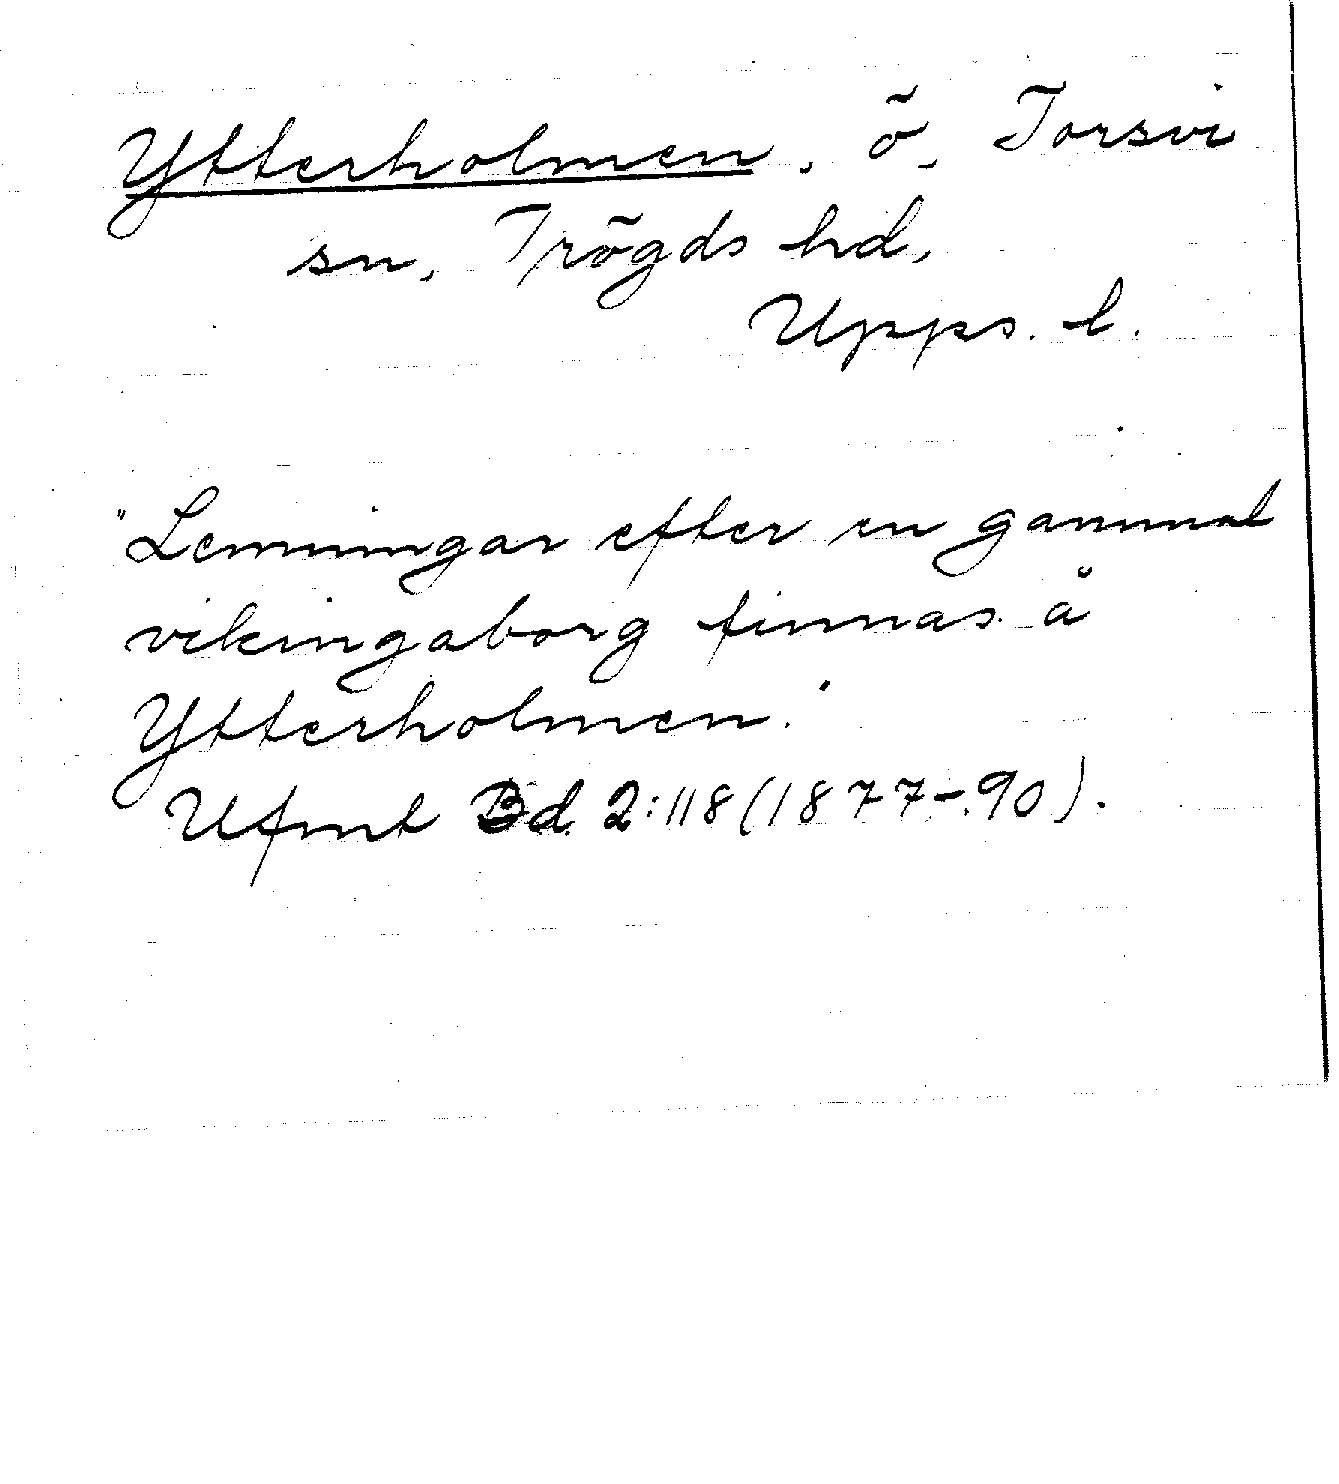 Ytterholmen, ö, Torsvi
sn, Trögds hd,
Upps. l.
"Lemningar efter en gammal
vikingaborg finnas å
Ytterholmen."
Ufmt Bd 2:118 (1877-90).